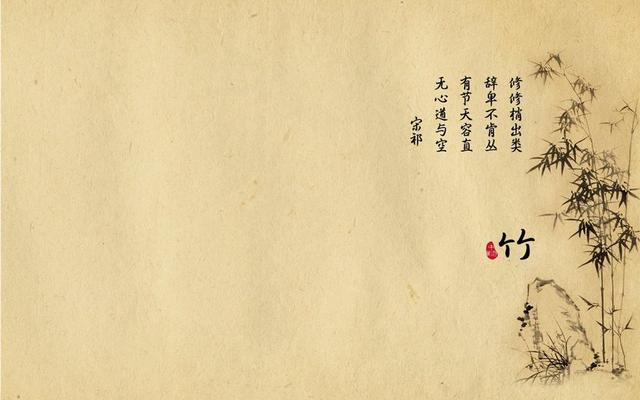 修修梢出类
辞卑不肯丛
有节天容直
无心道与空
宋祁
竹